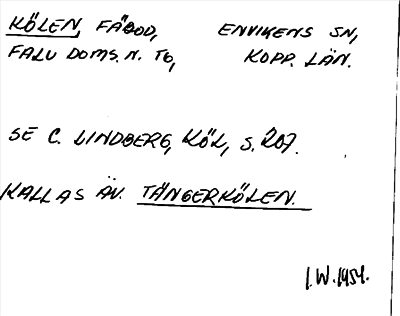 KÖLEN, FÄBOD, ENVIKENS SN,
FALU DOMS. N. TG, KOPP. LÄN.
SE C. LINDBERG, KÖL, S. 207.
KALLAS ÄV. TÄNGERKÖLEN.
I.W. 1954.